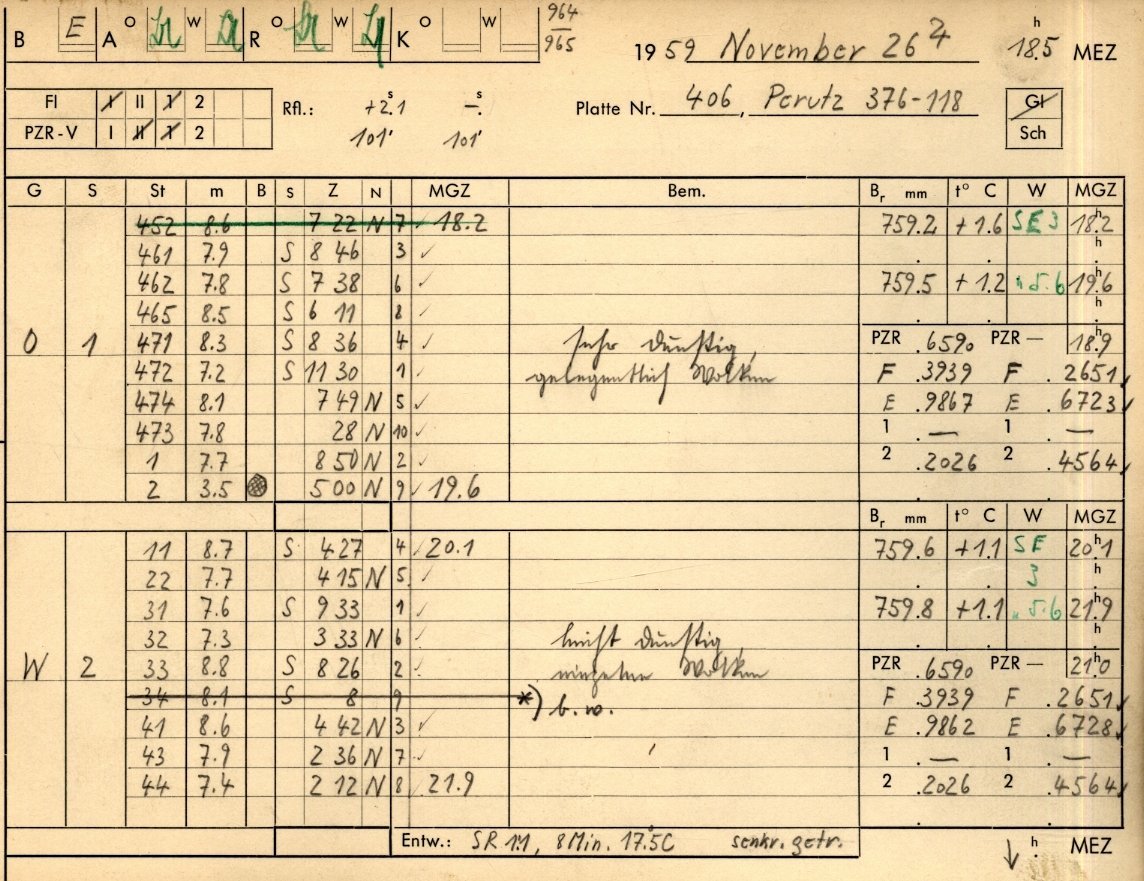 B E A O W R O W K O W 964/965 1959 November 26.4 h 18.5 MEZ
FI I II 1 2 Rfl.: +2.1 s -. s Platte Nr. 406, Perutz 376-118 Gl
PZR-V I II 1 2 101' 101' Sch
G S St m B S Z N MGZ Bem. Br mm t° C W MGZ
452 8.6 7 22 N 7 18.2 759.2 +1.6 SE 3 18.2 h
461 7.9 S 8 46 3 ✓ h
462 7.8 S 7 38 6 ✓ 759.5 +1.2 " 5.6 19.6 h
465 8.5 S 6 11 8 ✓ h
O 1 471 8.3 S 8 36 4 ✓ sehr dunstig, PZR .6590 PZR — 18.9 h
472 7.2 S 11 30 1 ✓ gelegentlich Wolken F .3939 F .2651 ✓
474 8.1 7 49 N 5 ✓ E .9867 E .6723 ✓
473 7.8 28 N 10 ✓ 1 . — 1 . —
1 7.7 8 50 N 2 ✓ 2 .2026 2 .4564 ✓
2 3.5 5 00 N 9 ✓ 19.6
Br mm t° C W MGZ
11 8.7 S 4 27 4 ✓ 20.1 759.6 +1.1 SE 20.1 h
22 7.7 4 15 N 5 ✓ 3 h
31 7.6 S 9 33 1 ✓ 759.8 +1.1 " 5.6 21.9 h
32 7.3 3 33 N 6 ✓ leicht dunstig, h
W 2 33 8.8 S 8 26 2 ✓ einzelne Wolken PZR .6590 PZR — 21.0 h
34 8.1 S 8 9 *) b.w. F .3939 F .2651 ✓
41 8.6 4 42 N 3 ✓ E .9862 E .6728 ✓
43 7.9 2 36 N 7 ✓ 1 . — 1 . —
44 7.4 2 12 N 8 ✓ 21.9 2 .2026 2 .4564 ✓
Entw.: SR 1:1, 8 Min. 17.5C senkr. getr. ↓ h MEZ